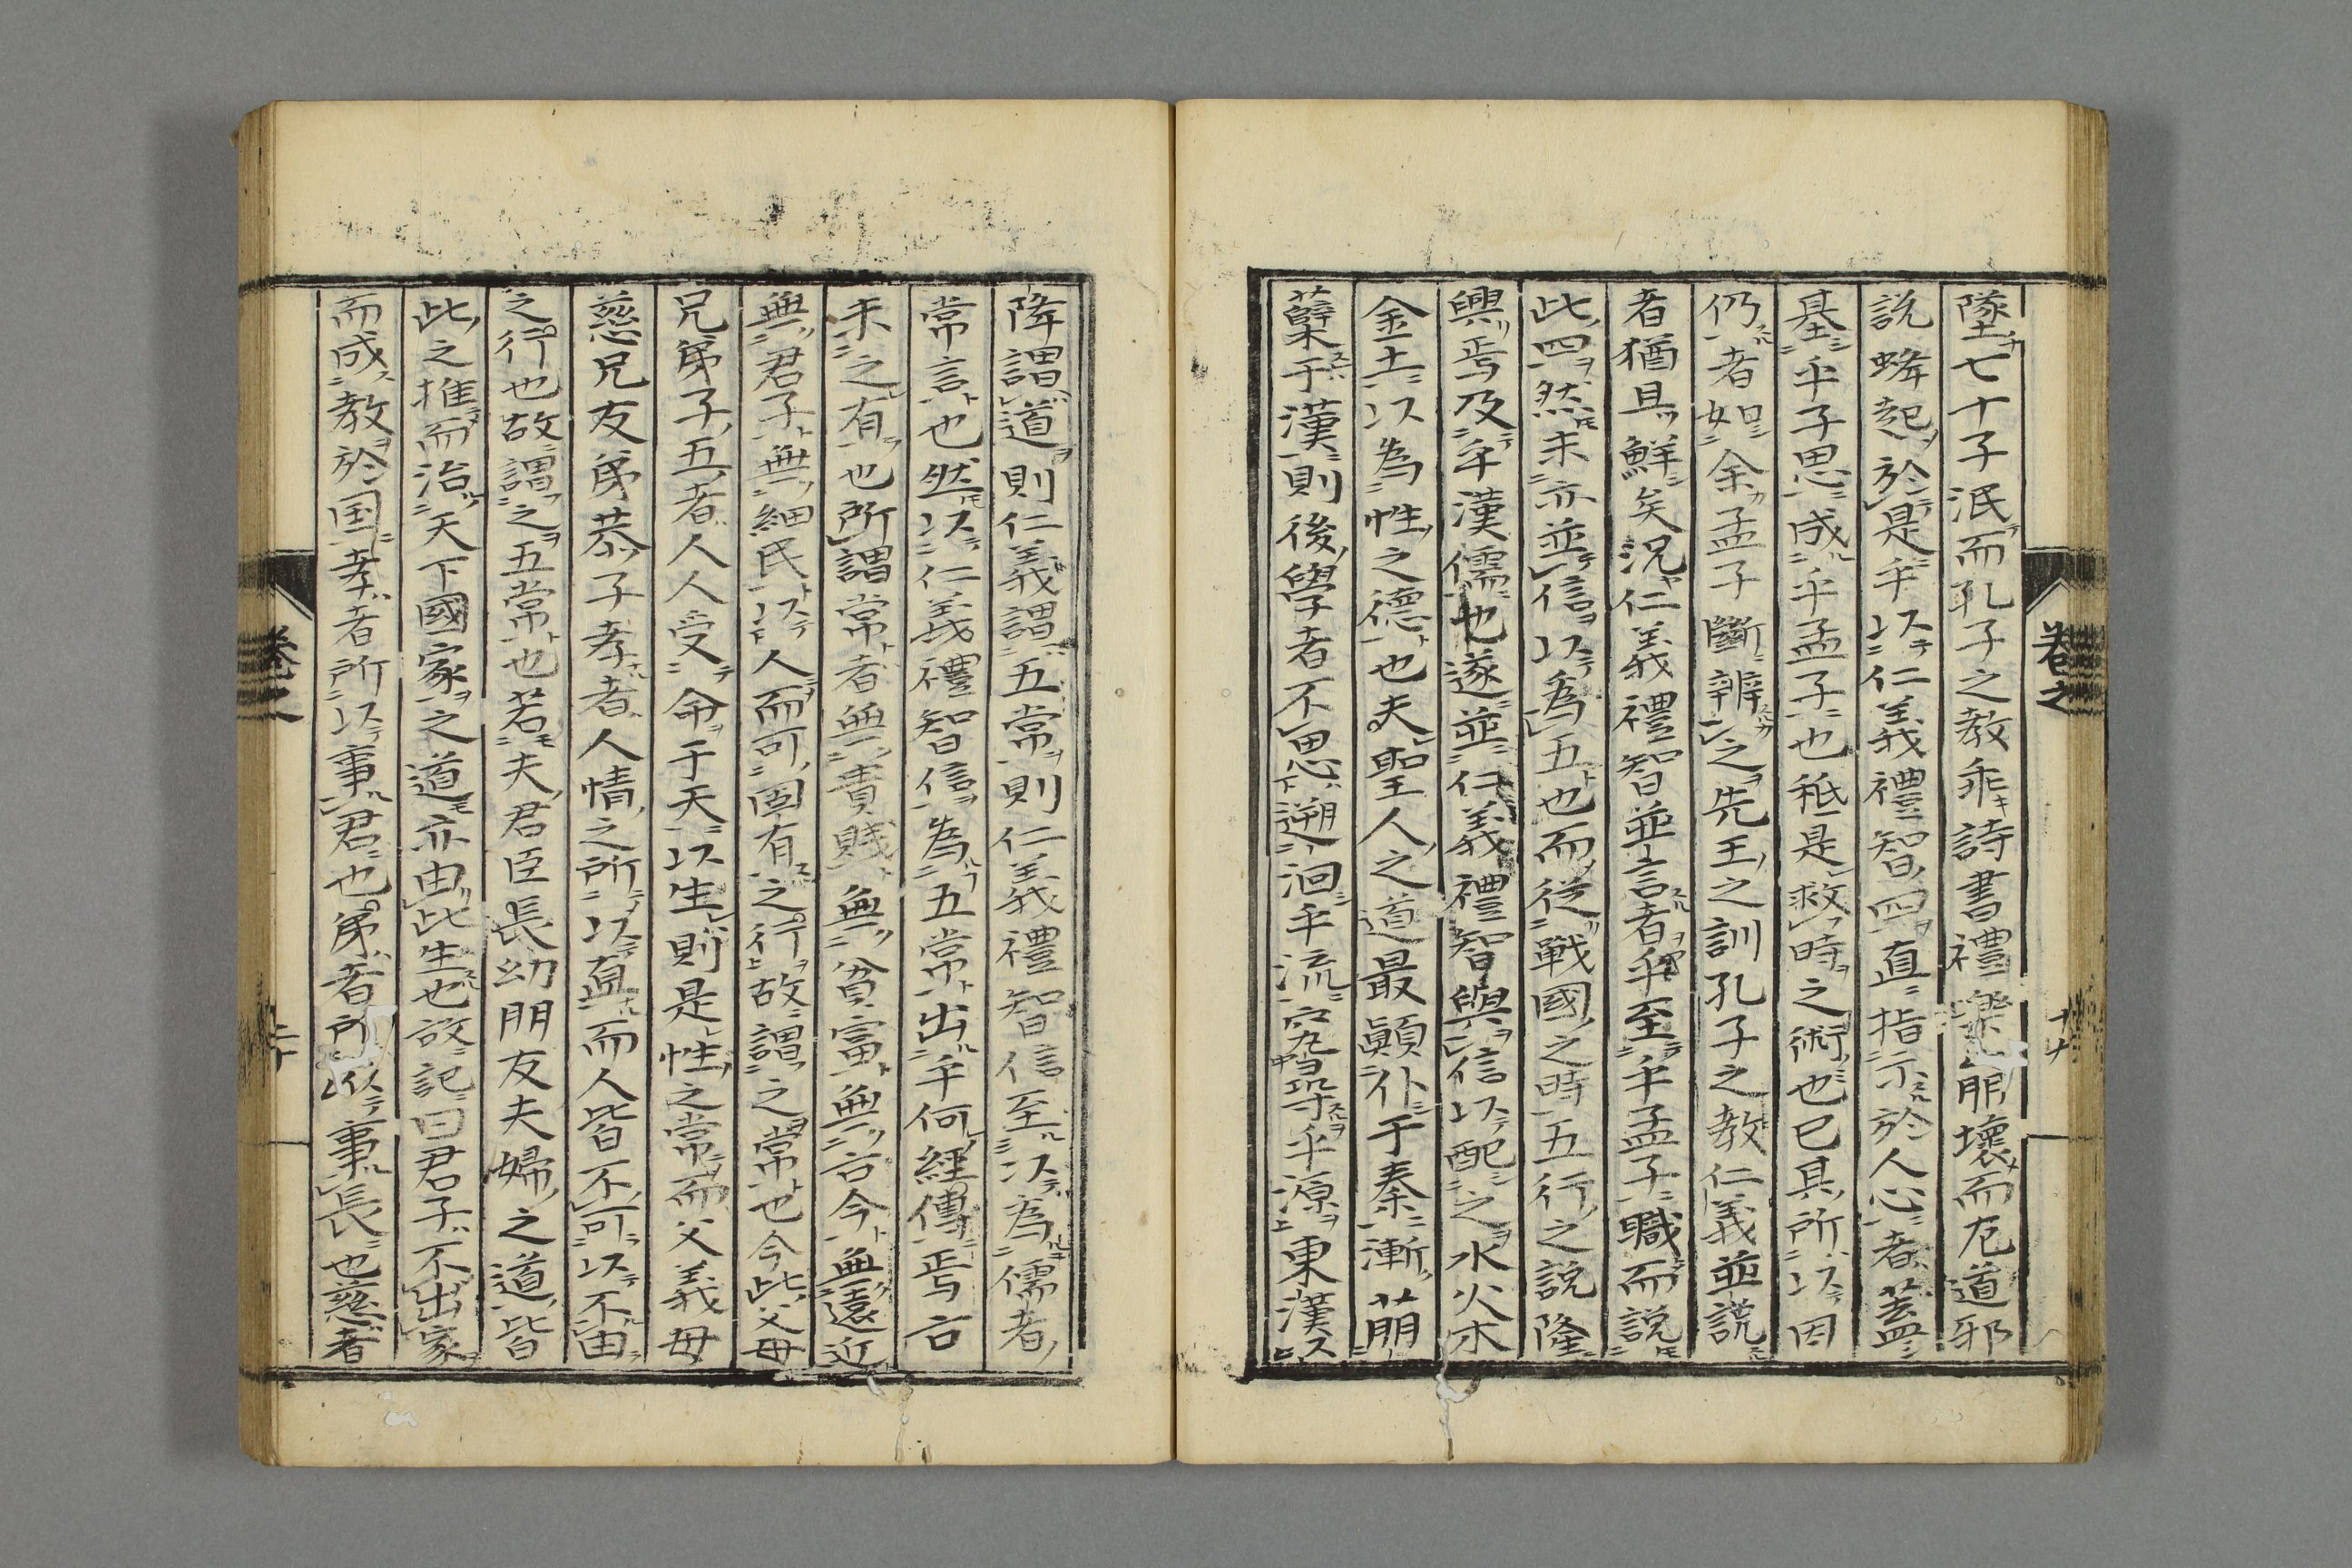 墜七十子泯而孔子之教乖詩書禮樂崩壞而厖道邪
説蜂起於是乎以仁義禮智四直指示於人心者蓋
基乎子思成乎孟子也秪是救時之術也已具所以因
仍者如余孟子斷辨之先王之訓孔子之教仁義並説
者猶且鮮矣況仁義禮智並言者乎至乎孟子職而説
此四然未亦並信以為五也而従戰國之時五行之説隆
興焉及乎漢儒也遂並仁義禮智與信以配之水火木
金土以為性之德也夫聖人之道最顚仆于秦漸萠
蘖于漢則後學者不思遡洄乎流究尋乎源東漢ス
卷之 十九
降謂道則仁義謂五常則仁義禮智信至以為儒者
常言也然以仁義禮智信為五常出乎何經傳焉古
未之有也所謂常者無貴賤無貧富無古今無遠近
無君子無細民以人而可固有之行故謂之常也今此父母
兄弟子五者人人受命于天以生則是性之常而父義母
慈兄友弟恭子孝者人情之所以直而人皆不可以不由
之行也故謂之五常也若夫君臣長幼朋友夫婦之道皆
此之推而治天下國家之道亦由此生也故記曰君子不出家
而成教於国孝者所以事君也弟者所以事長也慈者
卷之 二十